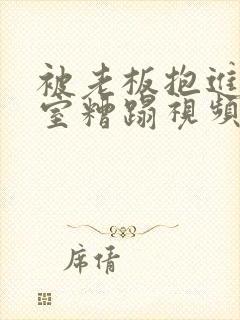 被老板抱進
室糟蹋視頻
席倩